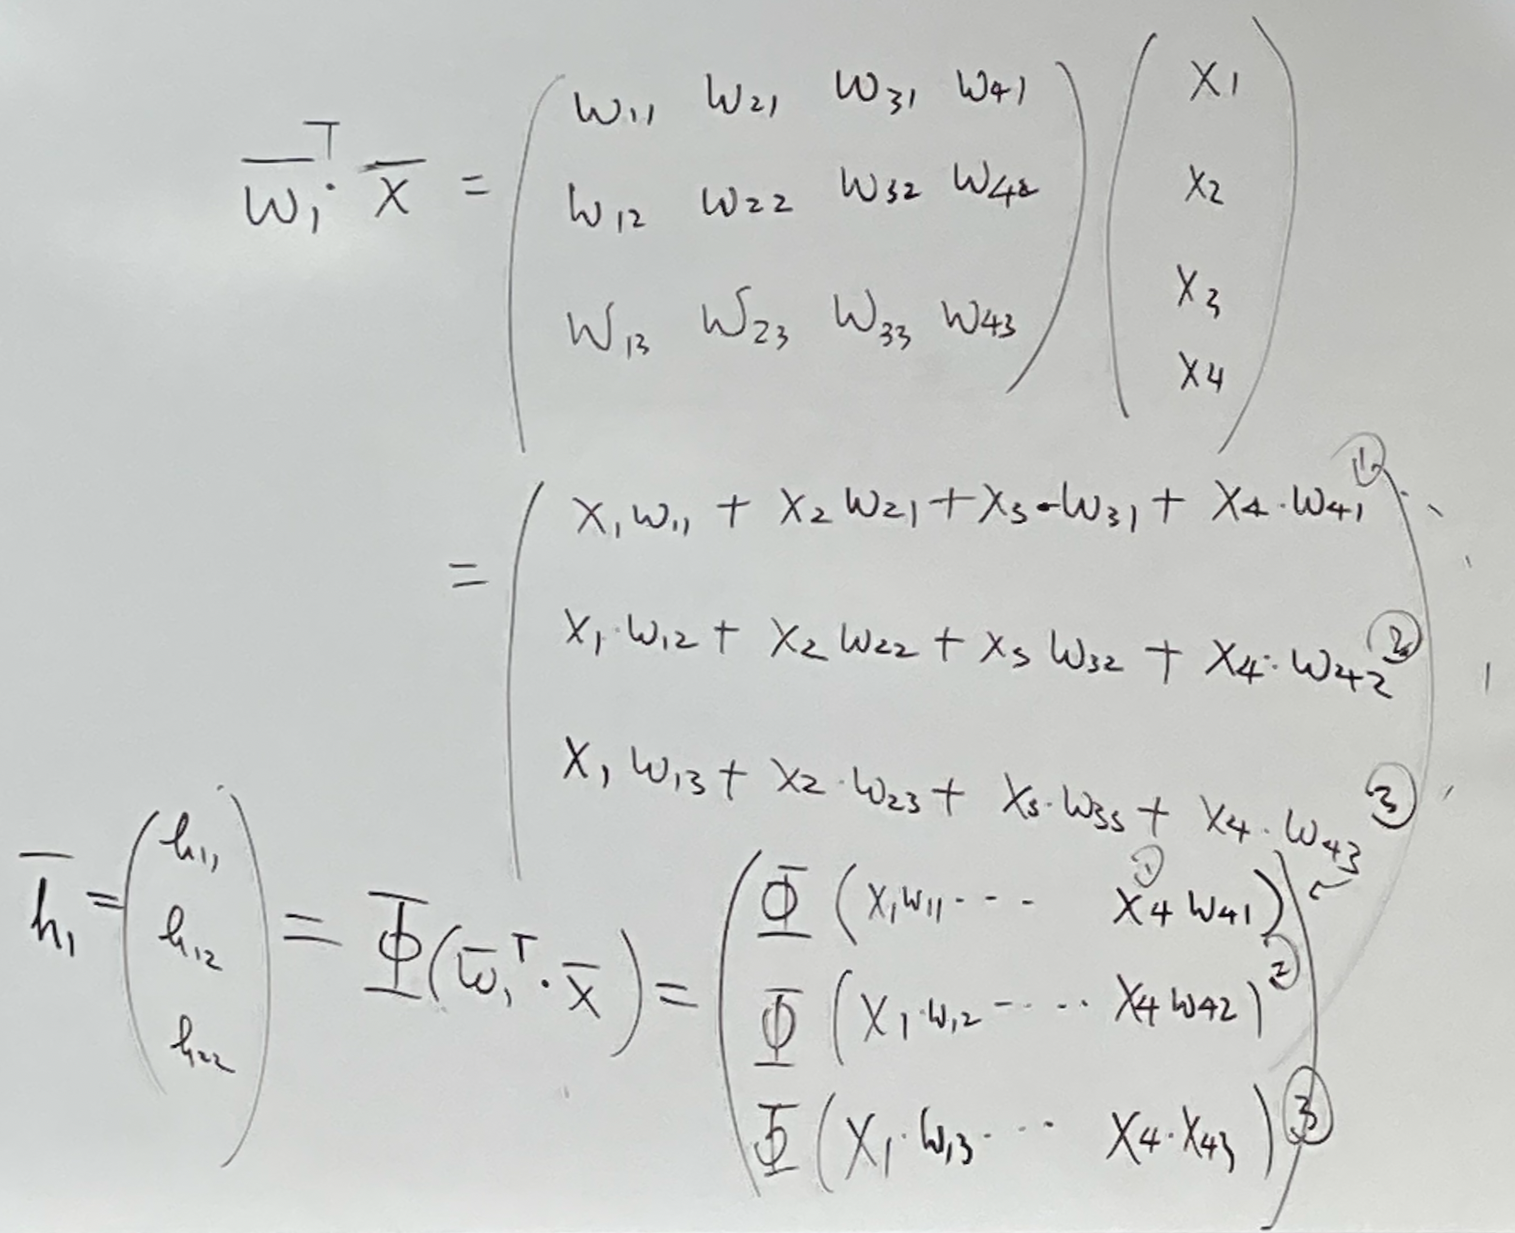 w̄₁ᵀ · x̄ = ( w₁₁ w₂₁ w₃₁ w₄₁ ) ( x₁ )
( w₁₂ w₂₂ w₃₂ w₄₂ ) ( x₂ )
( w₁₃ w₂₃ w₃₃ w₄₃ ) ( x₃ )
( x₄ )
= ( x₁w₁₁ + x₂w₂₁ + x₃·w₃₁ + x₄·w₄₁ ① )
( x₁·w₁₂ + x₂w₂₂ + x₃w₃₂ + x₄·w₄₂ ② )
( x₁w₁₃ + x₂·w₂₃ + x₃·w₃₃ + x₄·w₄₃ ③ )
h̄₁ = ( h₁₁ h₁₂ h₂₂ ) = Φ(w̄₁ᵀ · x̄) = ( Φ(x₁w₁₁ --- x₄w₄₁) ①
Φ(x₁·w₁₂ ---·· x₄w₄₂) ②
Φ(x₁·w₁₃ ·-·· x₄·x₄₃) ③ )